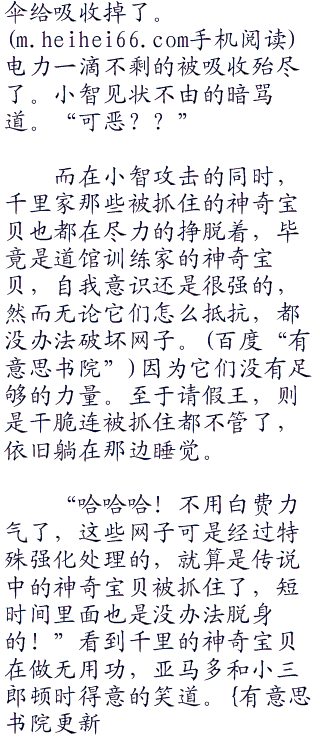 伞给吸收掉了。
(m.heihei66.com手机阅读)
电力一滴不剩的被吸收殆尽
了。小智见状不由的暗骂
道。“可恶？？”
而在小智攻击的同时，
千里家那些被抓住的神奇宝
贝也都在尽力的挣脱着，毕
竟是道馆训练家的神奇宝
贝，自我意识还是很强的，
然而无论它们怎么抵抗，都
没办法破坏网子。(百度“有
意思书院”)因为它们没有足
够的力量。至于请假王，则
是干脆连被抓住都不管了，
依旧躺在那边睡觉。
“哈哈哈！不用白费力
气了，这些网子可是经过特
殊强化处理的，就算是传说
中的神奇宝贝被抓住了，短
时间里面也是没办法脱身
的！”看到千里的神奇宝贝
在做无用功，亚马多和小三
郎顿时得意的笑道。{有意思
书院更新